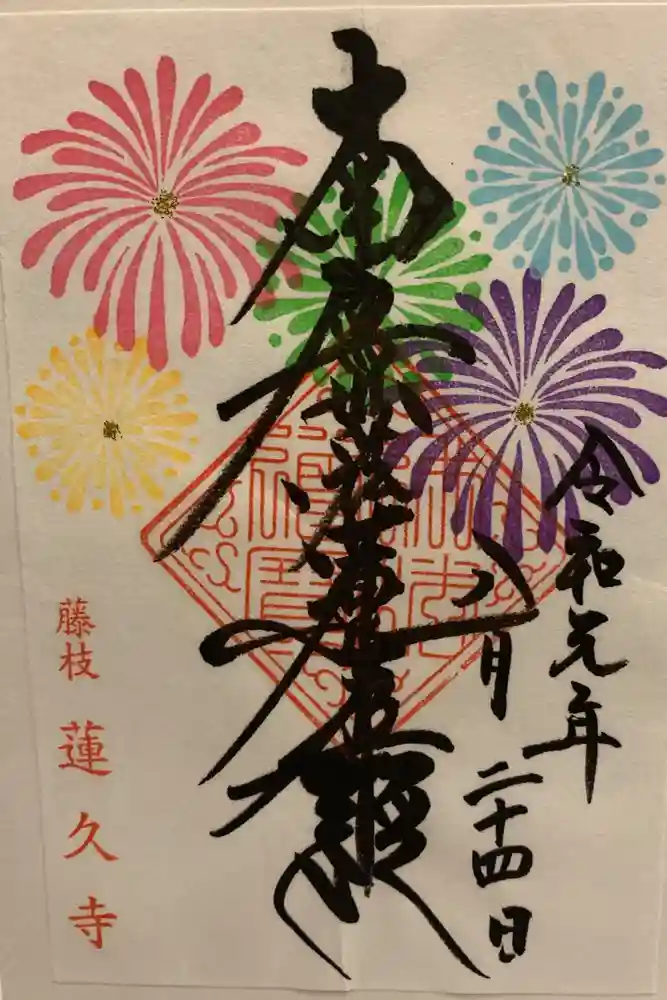 令和元年
八月二十四日
南無妙法蓮華経
藤枝 蓮久寺